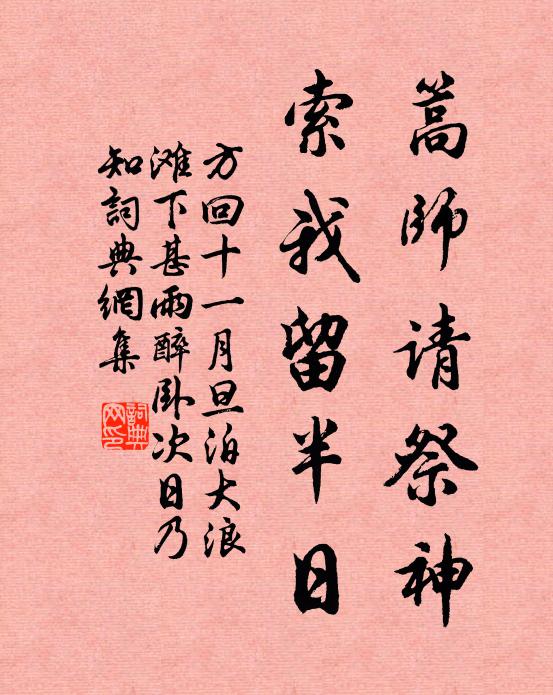 篙師请祭神
索我留半日
方回十一月旦泊大浪
滩下甚雨醉卧次日乃
知詞典網集
詞典网印